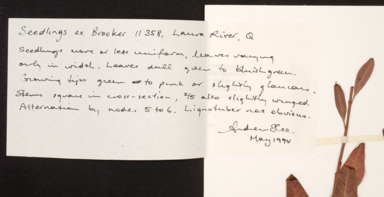 Seedlings ex Brooker 11358. Laura River, Q
Seedlings more or less uniform, leaves varying
only in width. Leaves dull green to bluish green.
Growing tips green to pink or slightly glaucous.
Stems square in cross-section, also slightly winged.
Alternation by nodes 5 to 6. Lignotuber not obvious.
Andrew
May 1994